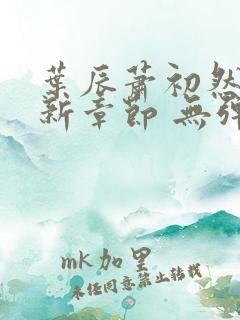 葉辰蕭初然
新章節 無彈
mk加里
未任同意禁止转载